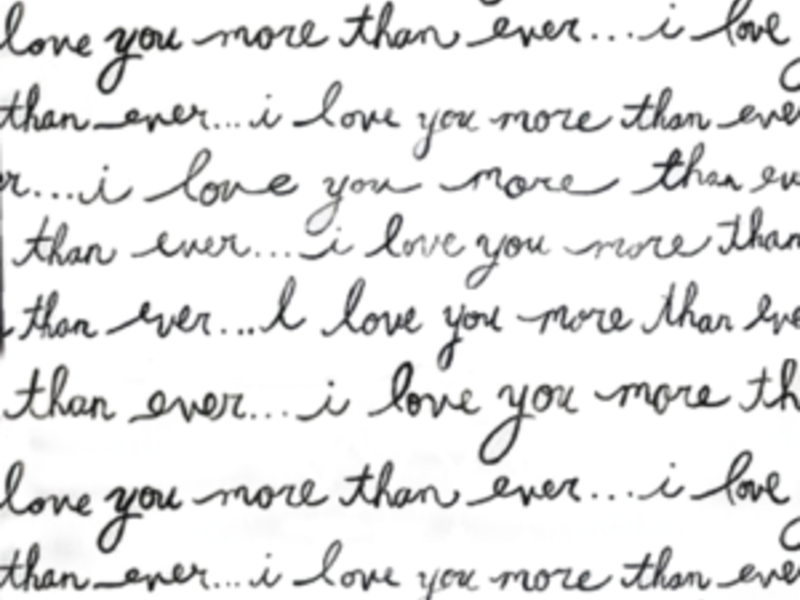 love you more than ever...i love
than ever...i love you more than ever
er....i love you more than ev
than ever....i love you more than
than ever...I love you more than eve
than ever...i love you more th
love you more than ever...i love
than ever...i love you more than ever